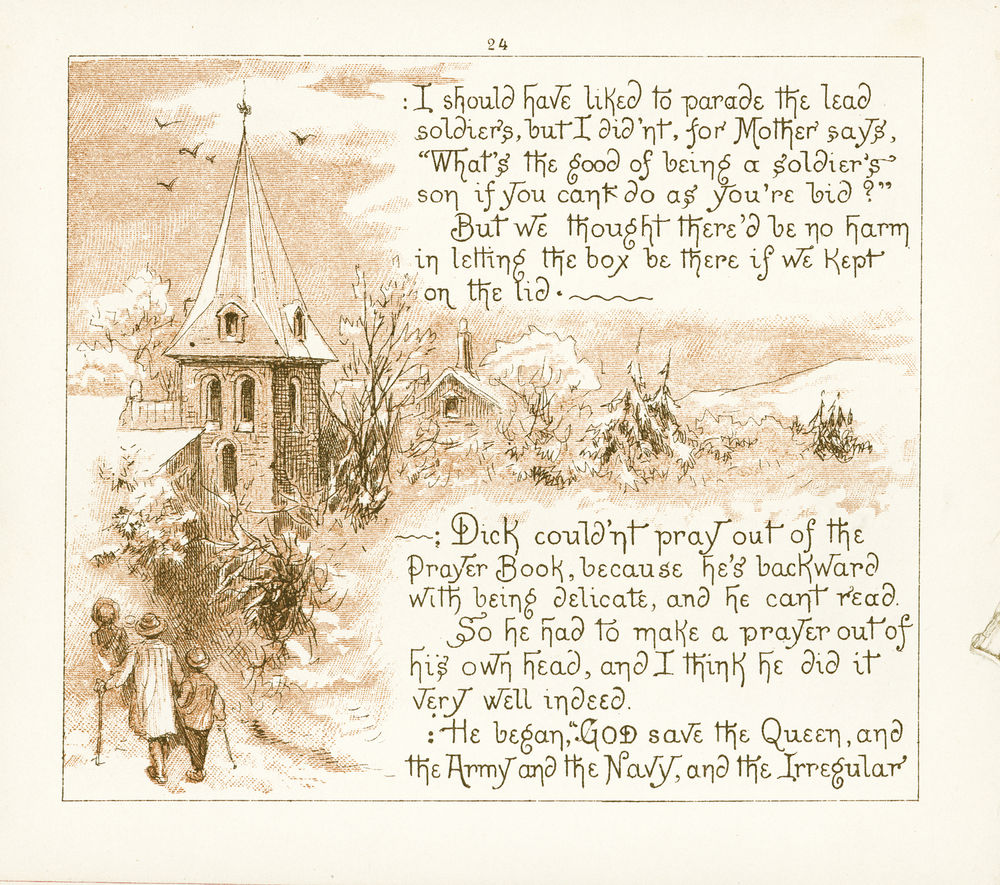 24
: I should have liked to parade the lead
soldiers, but I did'nt, for Mother says,
“What's the good of being a soldier's
son if you cant do as you're bid ?”
But we thought there'd be no harm
in letting the box be there if we kept
on the lid.
: Dick could'nt pray out of the
Prayer Book, because he's backward
with being delicate, and he cant read.
So he had to make a prayer out of
his own head, and I think he did it
very well indeed.
: He began, “: GOD save the Queen, and
the Army and the Navy, and the Irregular